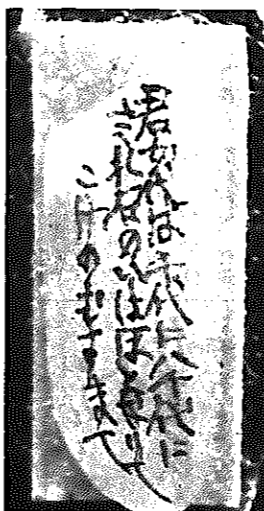 君が代は千代に八千代に
さざれ石のいはほとなりて
こけのむすまで